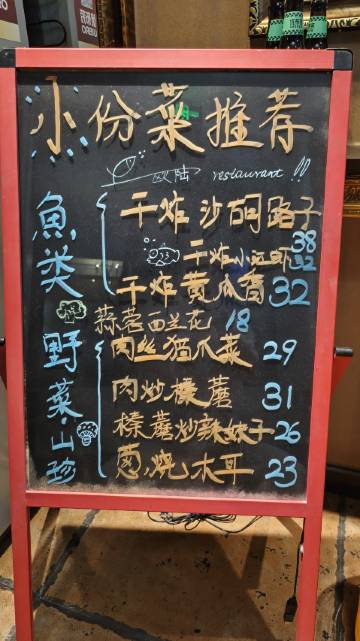 小份菜推荐
欧陆 restaurant !!
魚类
干炸沙胴路子 38
干炸小河虾 32
干炸黄瓜香 32
蒜蓉西兰花 18
野菜·山珍
肉丝猫爪菜 29
肉炒榛蘑 31
榛蘑炒辣妹子 26
葱烧木耳 23